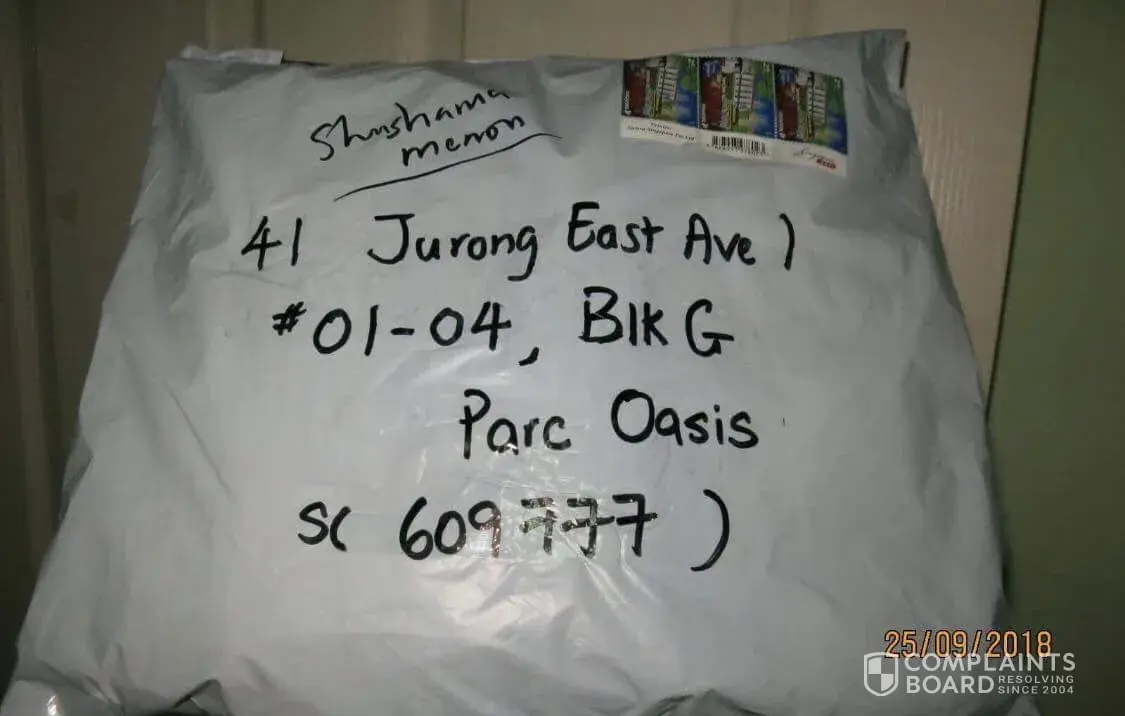 Shushama
menon
41 Jurong East Ave 1
#01-04, Blk G
Parc Oasis
S( 609777 )
25/09/2018
COMPLAINTS
BOARD RESOLVING
SINCE 2004